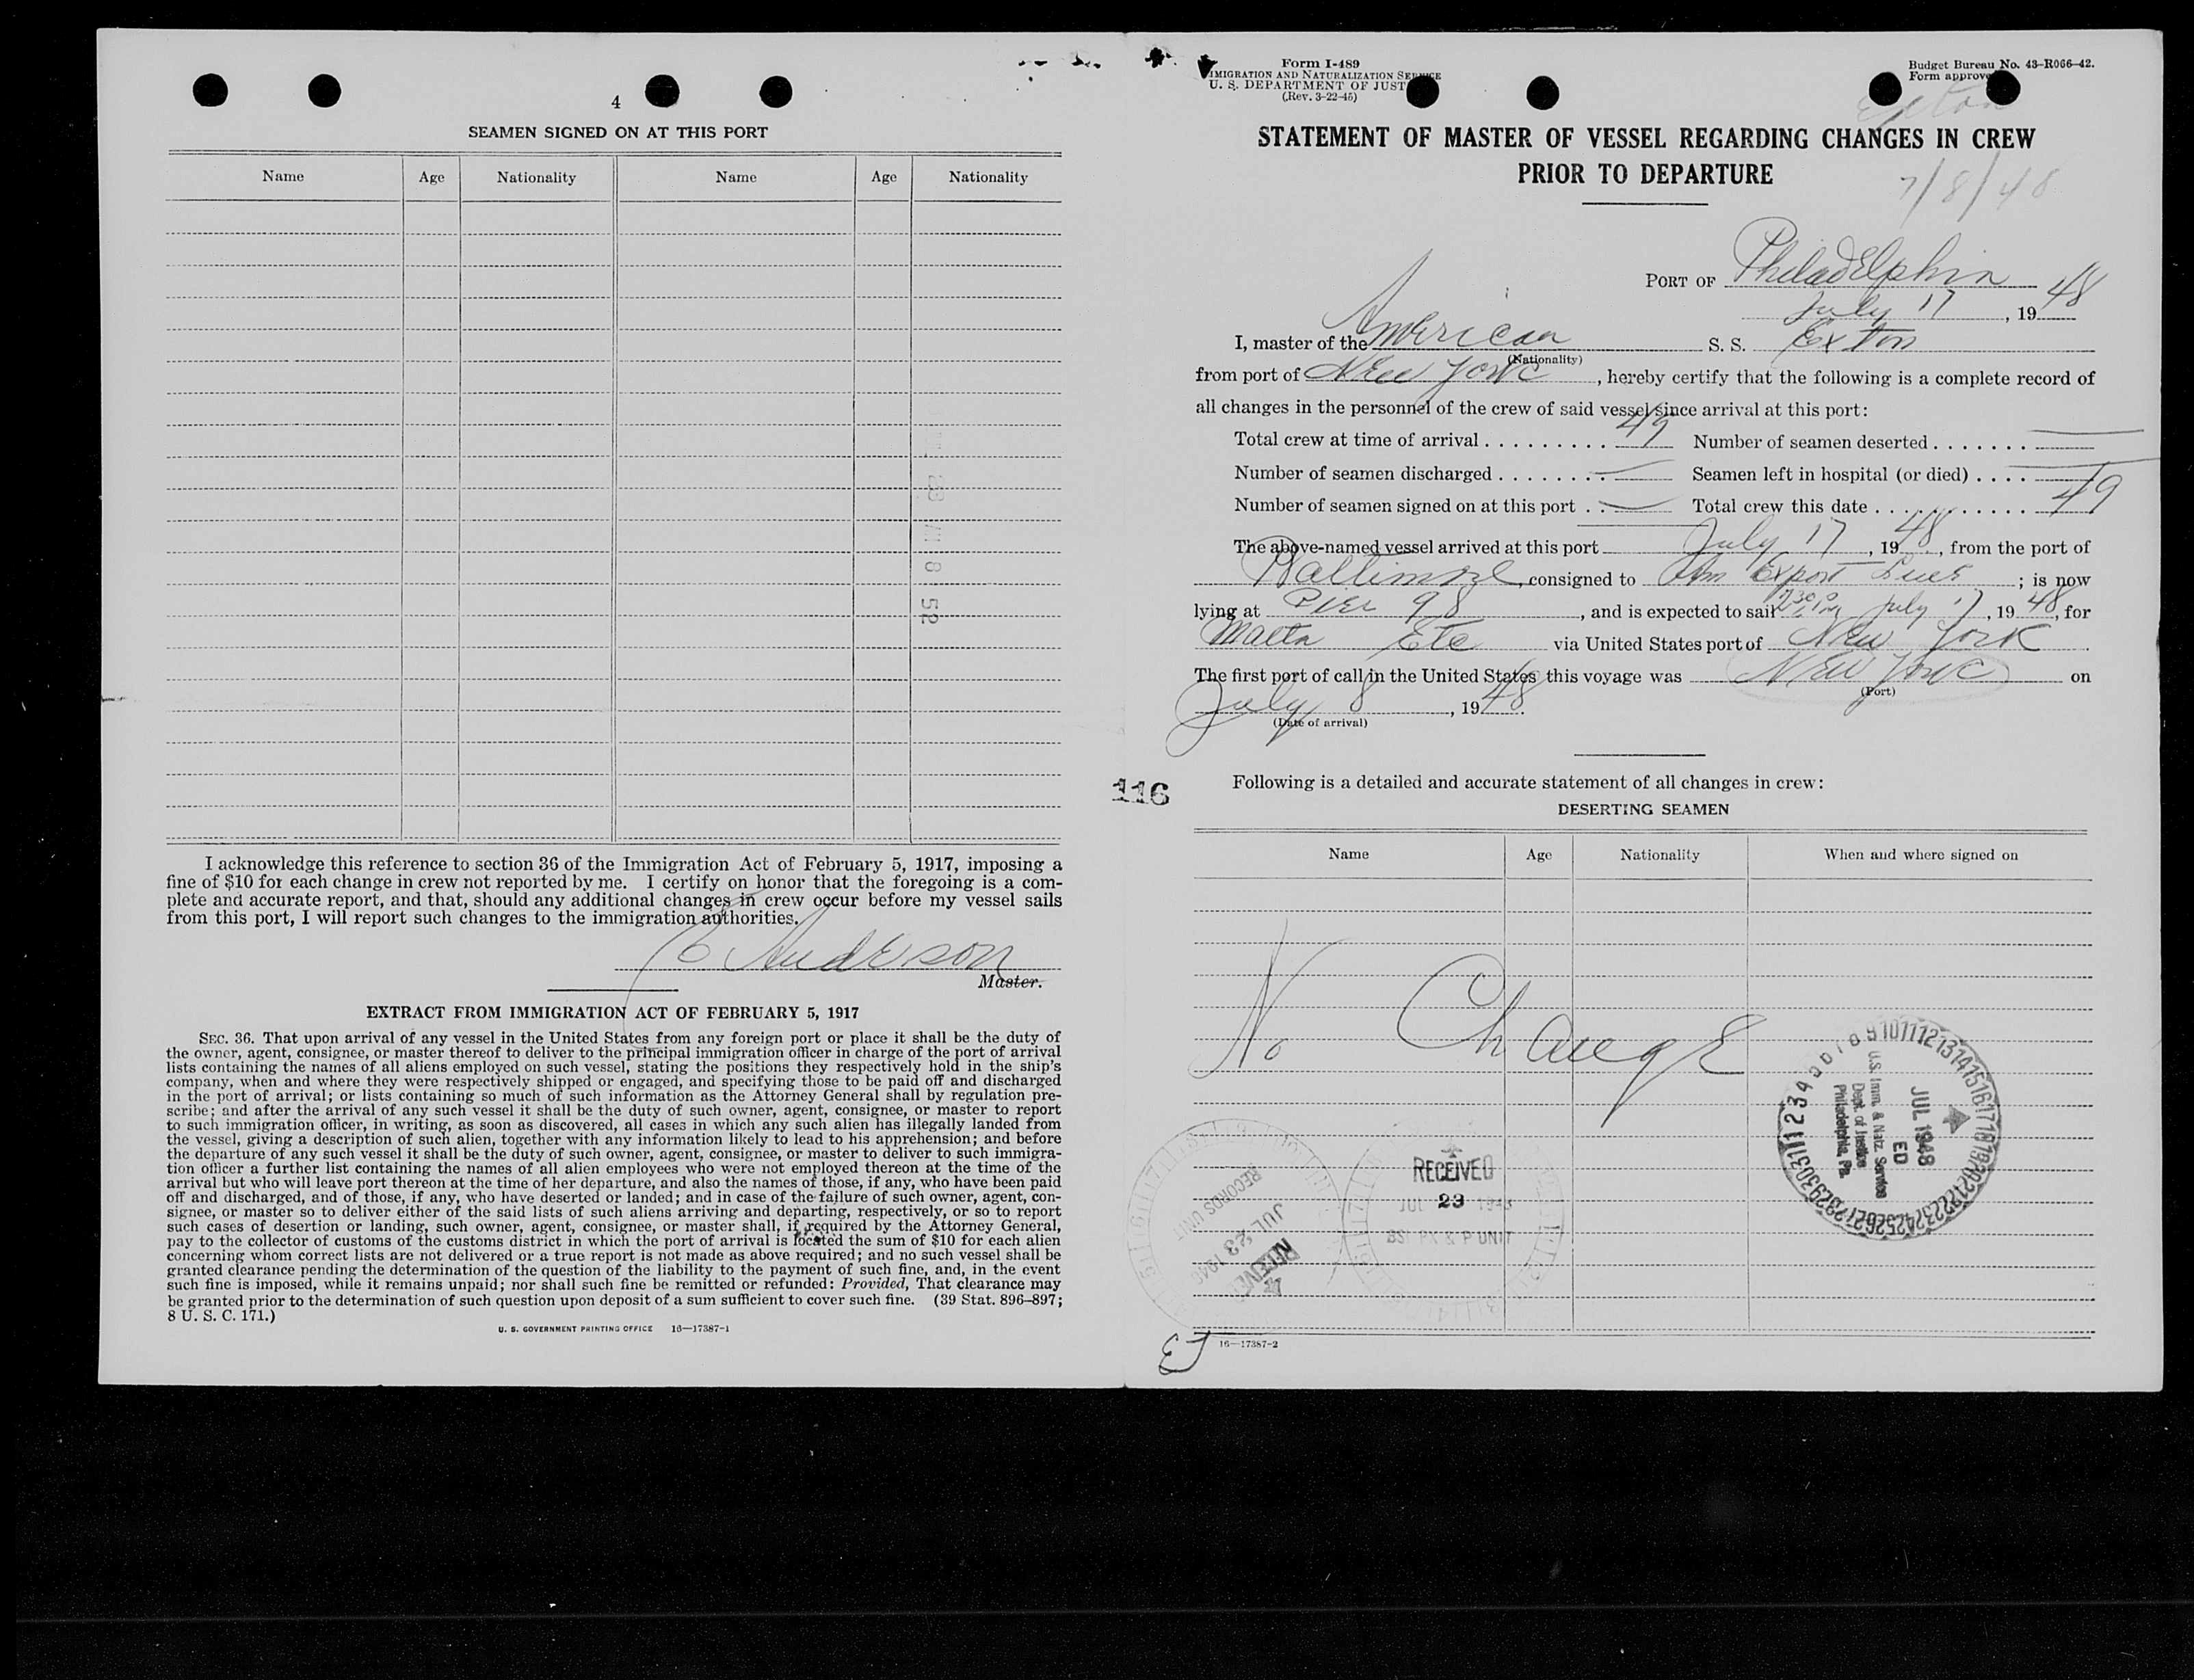 4
SEAMEN SIGNED ON AT THIS PORT
Name Age Nationality Name Age Nationality
23 8 52
I acknowledge this reference to section 36 of the Immigration Act of February 5, 1917, imposing a
fine of $10 for each change in crew not reported by me. I certify on honor that the foregoing is a com-
plete and accurate report, and that, should any additional changes in crew occur before my vessel sails
from this port, I will report such changes to the immigration authorities.
C Anderson
Master.
EXTRACT FROM IMMIGRATION ACT OF FEBRUARY 5, 1917
SEC. 36. That upon arrival of any vessel in the United States from any foreign port or place it shall be the duty of
the owner, agent, consignee, or master thereof to deliver to the principal immigration officer in charge of the port of arrival
lists containing the names of all aliens employed on such vessel, stating the positions they respectively hold in the ship's
company, when and where they were respectively shipped or engaged, and specifying those to be paid off and discharged
in the port of arrival; or lists containing so much of such information as the Attorney General shall by regulation pre-
scribe; and after the arrival of any such vessel it shall be the duty of such owner, agent, consignee, or master to report
to such immigration officer, in writing, as soon as discovered, all cases in which any such alien has illegally landed from
the vessel, giving a description of such alien, together with any information likely to lead to his apprehension; and before
the departure of any such vessel it shall be the duty of such owner, agent, consignee, or master to deliver to such immigra-
tion officer a further list containing the names of all alien employees who were not employed thereon at the time of the
arrival but who will leave port thereon at the time of her departure, and also the names of those, if any, who have been paid
off and discharged, and of those, if any, who have deserted or landed; and in case of the failure of such owner, agent, con-
signee, or master so to deliver either of the said lists of such aliens arriving and departing, respectively, or so to report
such cases of desertion or landing, such owner, agent, consignee, or master shall, if required by the Attorney General,
pay to the collector of customs of the customs district in which the port of arrival is located the sum of $10 for each alien
concerning whom correct lists are not delivered or a true report is not made as above required; and no such vessel shall be
granted clearance pending the determination of the question of the liability to the payment of such fine, and, in the event
such fine is imposed, while it remains unpaid; nor shall such fine be remitted or refunded: Provided, That clearance may
be granted prior to the determination of such question upon deposit of a sum sufficient to cover such fine. (39 Stat. 896–897;
8 U. S. C. 171.)
U. S. GOVERNMENT PRINTING OFFICE 16—17387-1
Form I-489
IMIGRATION AND NATURALIZATION SERVICE
U. S. DEPARTMENT OF JUST
(Rev. 3-22-45)
Budget Bureau No. 43-R066-42.
Form approve
Exton
STATEMENT OF MASTER OF VESSEL REGARDING CHANGES IN CREW
PRIOR TO DEPARTURE
7/8/48
PORT OF Philadelphia
July 17, 1948
I, master of the American S. S. Exton
(Nationality)
from port of New York, hereby certify that the following is a complete record of
all changes in the personnel of the crew of said vessel since arrival at this port:
Total crew at time of arrival . . . . . . . . . 49 Number of seamen deserted . . . . . . . —
Number of seamen discharged . . . . . . . . — Seamen left in hospital (or died) . . . . —
Number of seamen signed on at this port . . — Total crew this date . . . . . . . . . . . . 49
The above-named vessel arrived at this port July 17, 1948, from the port of
Baltimore, consigned to Am Export Lines; is now
lying at Pier 98, and is expected to sail July 17, 1948, for
Malta Etc via United States port of New York.
The first port of call in the United States this voyage was New York on
(Port)
July 8, 1948.
(Date of arrival)
116
Following is a detailed and accurate statement of all changes in crew:
DESERTING SEAMEN
Name Age Nationality When and where signed on
No Change
U.S. Imm. & Natz. Service
Dept. of Justice
Philadelphia, Pa.
JUL 1948
ED
RECEIVED
JUL 23 1948
RECORDS UNIT
RECEIVED
JUL 23 1948
P UNIT
EJ
16—17387-2